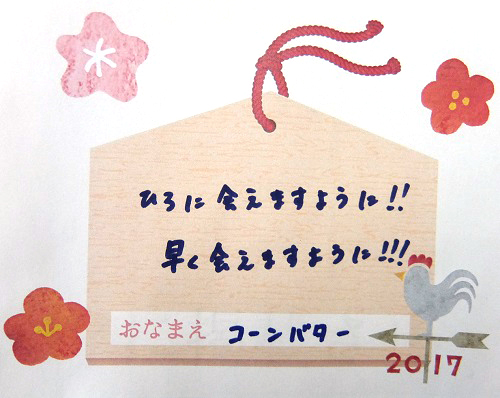 ひろに会えますように!!
早く会えますように!!!
おなまえ コーンバター
2017